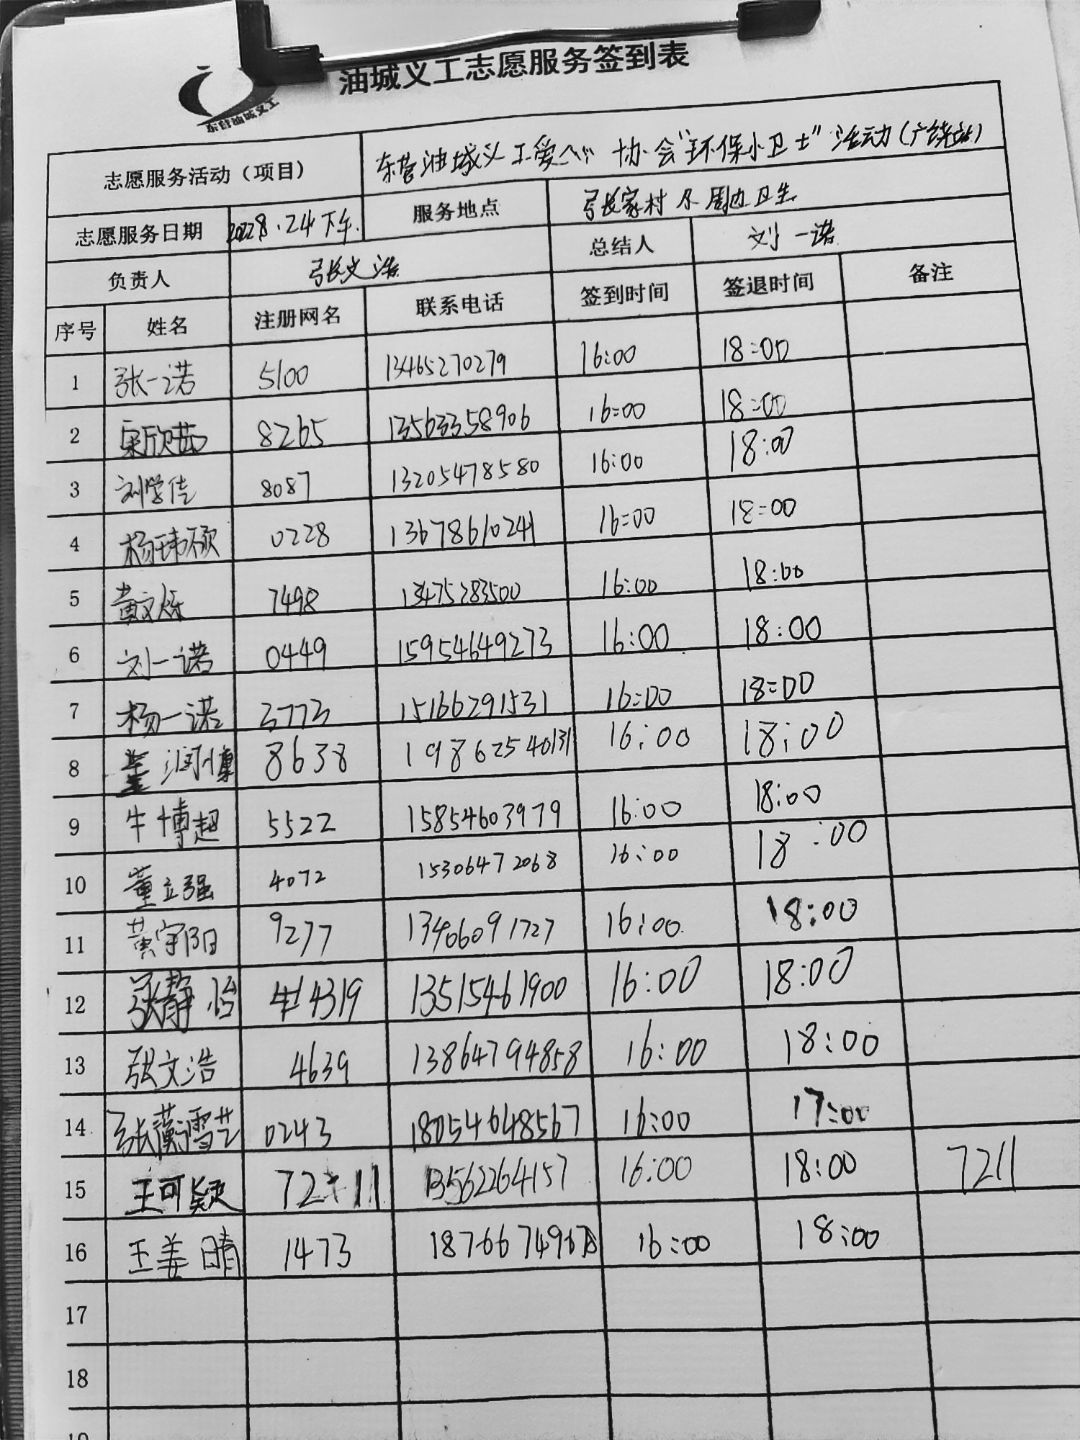 油城义工志愿服务签到表
东营油城义工
志愿服务活动（项目） 东营油城义工爱心协会“环保小卫士”活动（广饶站）
志愿服务日期 20228.24下午 服务地点 弓长家村 周边卫生
负责人 张文浩 总结人 刘一诺
序号 姓名 注册网名 联系电话 签到时间 签退时间 备注
1 张一诺 5100 13465270279 16:00 18:00
2 欣茹 8265 13563358906 16:00 18:00
3 刘学佳 8087 13205478580 16:00 18:00
4 杨玮硕 0228 13678610241 16:00 18:00
5 黄文烁 7498 13475283500 16:00 18:00
6 刘一诺 0449 15954649273 16:00 18:00
7 杨一诺 3773 15166291531 16:00 18:00
8 董润博 8638 19862540131 16:00 18:00
9 牛博超 5522 15854603979 16:00 18:00
10 董立强 4072 15306472068 16:00 18:00
11 黄宇阳 9277 13406091727 16:00 18:00
12 张静怡 4319 13515461900 16:00 18:00
13 张文浩 4639 13864794858 16:00 18:00
14 张藏雪芝 0243 18054648567 16:00 17:00
15 王可颖 7211 13562264157 16:00 18:00 7211
16 王姜晴 1473 18766749678 16:00 18:00
17
18
19